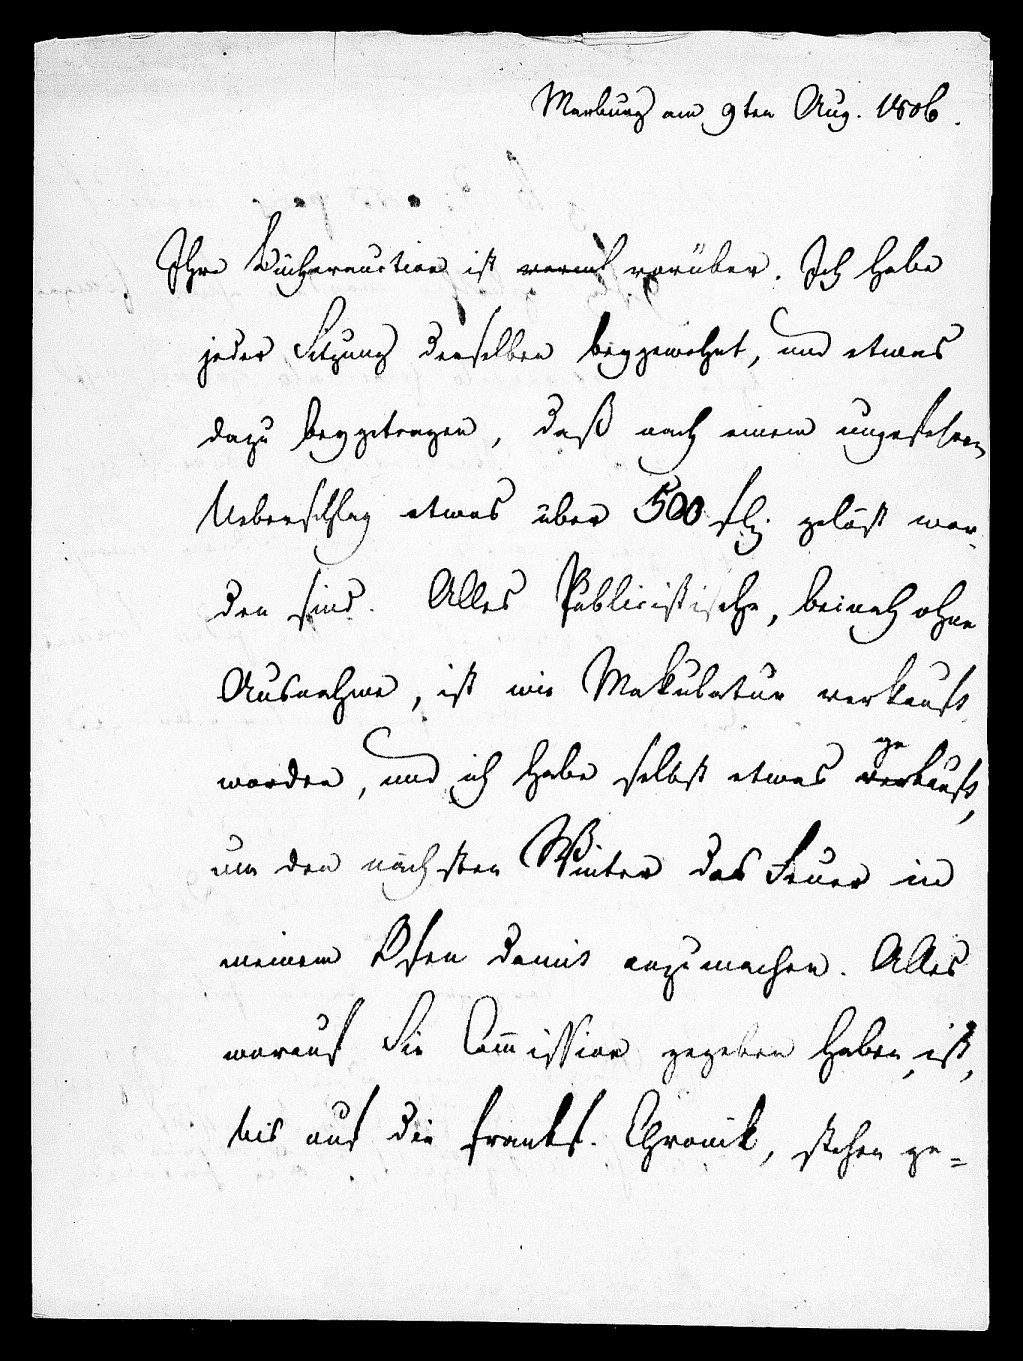 Marburg am 9ten Aug. 1806.
Ihre Bücherauction ist vorüber. Ich habe
jeder Sitzung derselben beygewohnt, und etwas
dazu beygetragen, daß nach einem ungefehren
Ueberschlag etwas über 500 fl. gelöst wor-
den sind. Alles Publicistische, beinah ohne
Ausnahme, ist wie Makulatur verkauft
worden, und ich habe selbst etwas gekauft,
um den nächsten Winter das Feuer in
meinem Ofen damit anzumachen. Alles
worauf Sie Commission gegeben haben, ist,
bis auf die Frankf. Chronik, stehen ge=